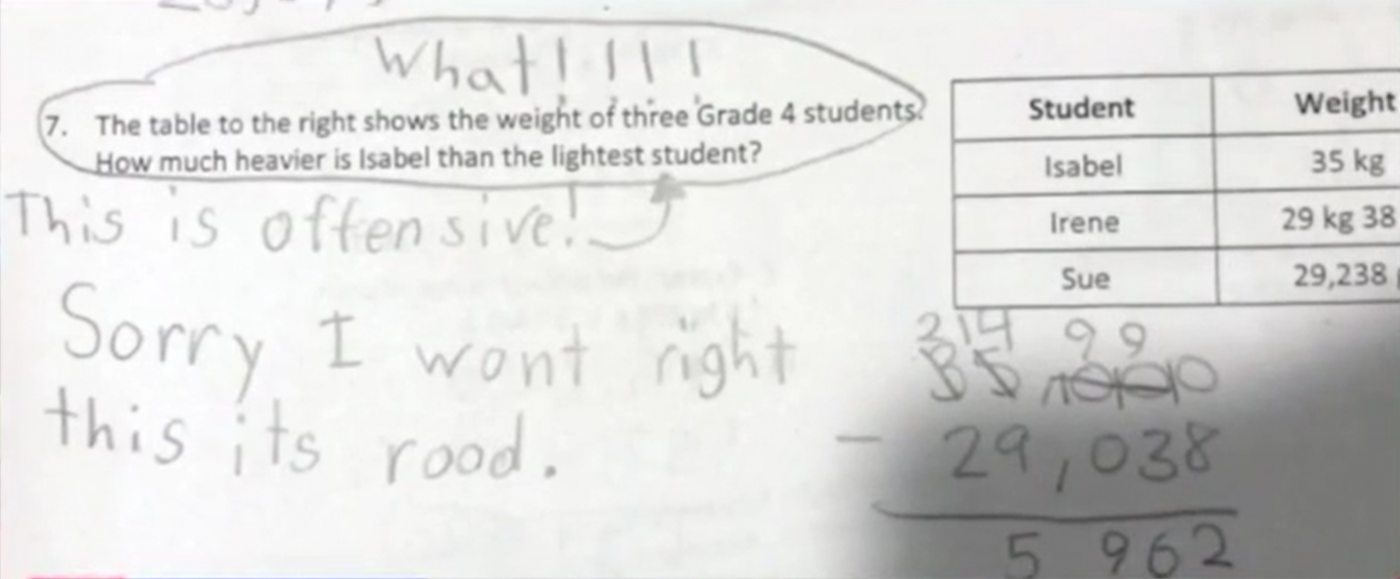 What!!!!
7. The table to the right shows the weight of three Grade 4 students.
How much heavier is Isabel than the lightest student?
This is offensive!
Sorry I wont right
this its rood.
Student Weight
Isabel 35 kg
Irene 29 kg 38
Sue 29,238
2 14 9 9
35 10010
- 29,038
5 962